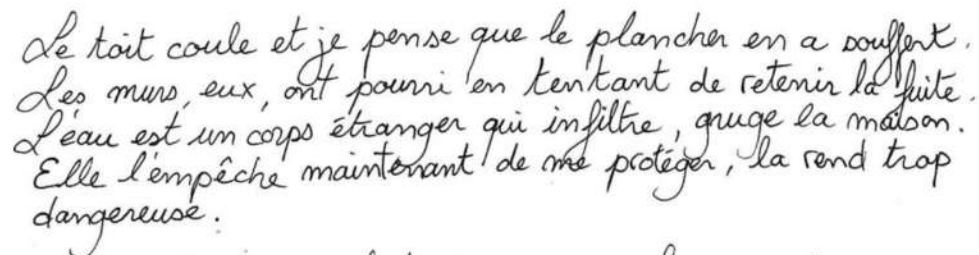 Le toit coule et je pense que le plancher en a souffert.
Les murs, eux, ont pourri en tentant de retenir la fuite.
L'eau est un corps étranger qui infiltre, gruge la maison.
Elle l'empêche maintenant de me protéger, la rend trop
dangereuse.